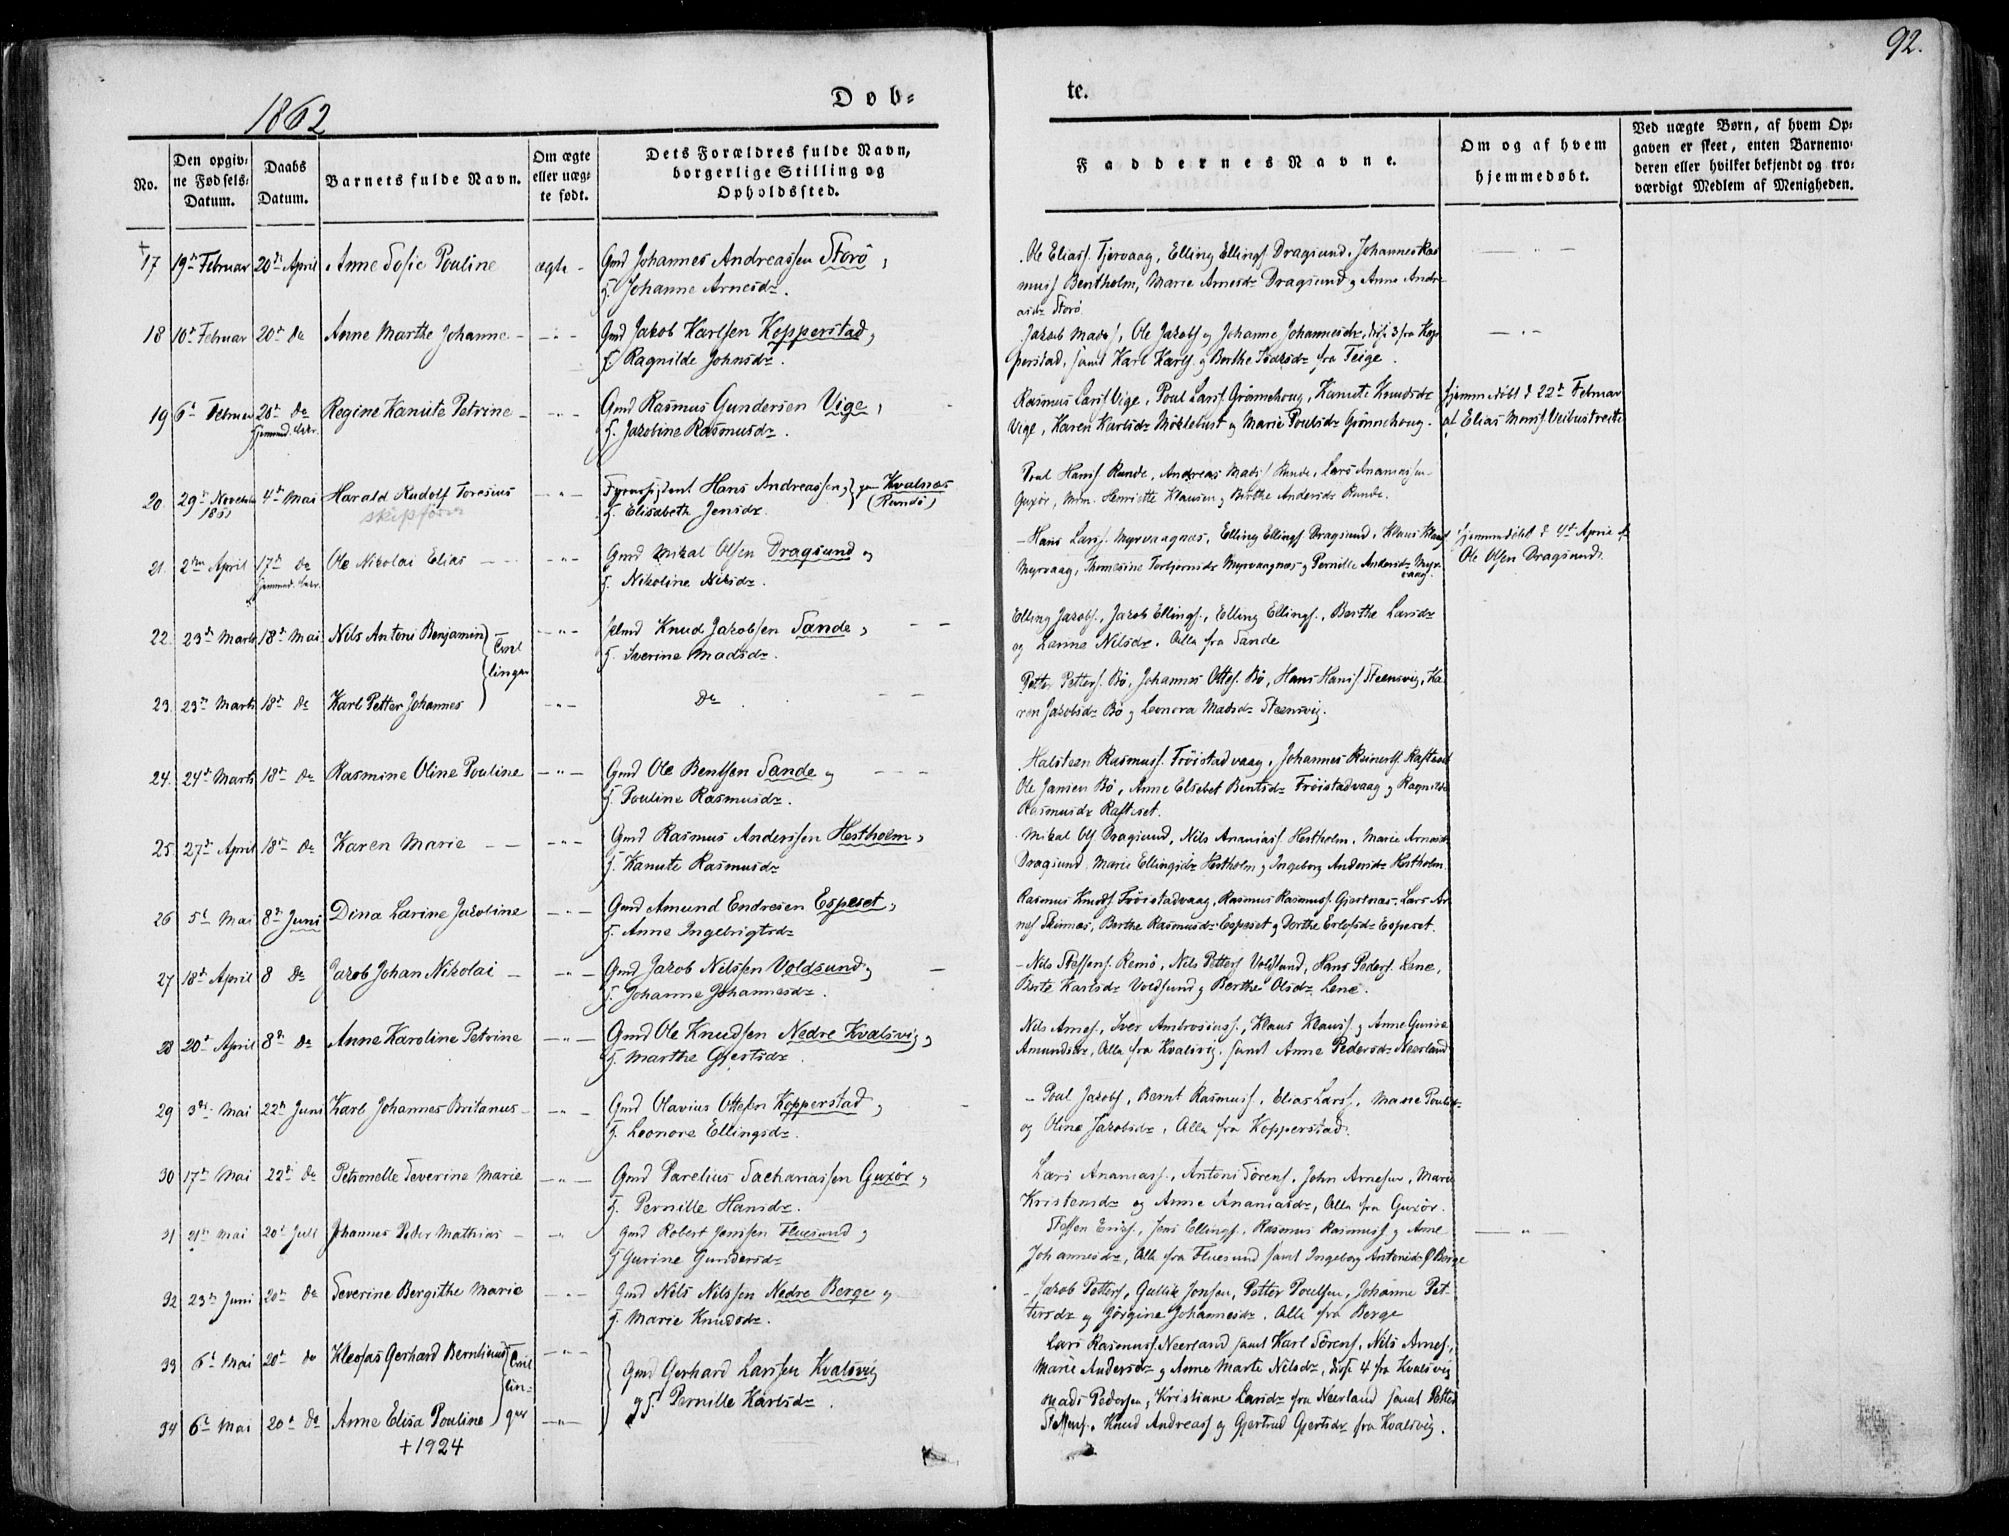 92.
1862
Døb-
te.
No.
Den opgiv-
ne Fødsels-
Datum.
Daabs
Datum.
Barnets fulde Navn.
Om ægte
eller uæg-
te født.
Dets Forældres fulde Navn,
borgerlige Stilling og
Opholdssted.
Faddernes Navne.
Om og af hvem
hjemmedøbt.
Ved uægte Børn, af hvem Op-
gaven er skeet, enten Barnemo-
deren eller hvilket bekjendt og tro-
værdigt Medlem af Menigheden.
17 19de Februar 20de April Anne Sofie Pouline ægte - Gmd Johannes Andreassen Storö,
H. Johanne Arnesdr.
Ole Eliass. Tjervaag, Elling Ellings Dragsund, Johannes Ras
muss Bentholm, Marie Arnesdr Dragsund og Anne Andre
asdr Storö
18 10de Februar 20de do Anne Marthe Johanne - Gmd Jakob Karlsen Kopperstad,
H. Ragnilde Johnsdr.
Jakob Mads, Ole Jakobs og Johanne Johannesdr, disse 3 fra Kop
perstad, samt Karl Karls. og Berthe Isaksdr fra Teige.
19 6te Februar 20de do Regine Kanute Petrine - Gmd Rasmus Gundersen Vige,
Hjemmed. bekr.
H. Jakobine Rasmusdr.
Rasmus Larss Vige, Poul Larss Grönnehoug, Kanute Knudsdr
Vige, Karen Karlsdr Möklebust og Marie Poulsdr Grönnehoug.
Hjemmedöbt d 22de Februar
af Elias Monss Veibustreite
20. 29de Novembr 4de Mai Harald Rudolf Toresius
1861
skipförer
Fyrassistent Hans Andreassen, Kvalnæs
H. Elisabeth Jensdr. (Rundö)
Poul Hanss Runde, Andreas Mads Runde, Lars Ananiassen
Guxör, Mdm. Henriette Klausen og Berthe Andersdr Runde.
21. 2den April 17de do Ole Nikolai Elias
Hjemmed. bekr.
Gmd Mikal Olsen Dragsund og
H. Nikoline Nilsdr.
- Hans Larss. Myrvaagnæs, Elling Ellings Dragsund, Klaus Klauss
Myrvaag, Thomesine Torbjornsdr Myrvaagnæs og Pernille Andersdr Myr
vaag.
Hjemmedöbt d 4de April af
Ole Olsen Dragsund.
22. 23de Marts 18de Mai Nils Antoni Benjamin
Tvil
lingar
Knud Jakobsen Sande,
H. Iverine Madsdr.
Elling Jakobs., Jakob Ellings., Elling Ellings., Berthe Larsdr
og Larine Nilsdr. Alle fra Sande
23. 23de Marts 18de do Karl Petter Johannes
Do
Petter Petters. Bö, Johannes Ottes. Bö, Hans Hanss Steensvig, Ka
ren Jakobsdr Bö og Leonora Madsdr Steensvig.
24. 24de Marts 18de do Rasmine Oline Pouline Gmd Ole Bentsen Sande og
H. Pouline Rasmusdr.
Halsteen Rasmuss. Fröistadvaag, Johannes Reinerts. Raftset
Ole Jansen Bö, Anne Elsebet Bentsdr Fröistadvaag og Ragnilde
Rasmusdr Raftset.
25. 27de April 18de do Karen Marie Gmd Rasmus Anderssen Hestholm,
H. Kanute Rasmusdr
Mikal Ols Dragsund, Nils Ananiass Hestholm, Marie Arnesdr
Dragsund, Marie Ellingsdr Hestholm og Ingeborg Andersdr Hestholm.
26 5te Mai 8de Juni Dina Larine Jakobine Gmd Amund Endresen Espeset,
H. Anne Ingebrigtsdr
Rasmus Knuds Fröistadvaag, Rasmus Rasmuss. Gjertnæs, Lars Ar
nes Skinnæs, Berthe Rasmusdr Espeset og Dorthe Erlofsdr Espeset.
27 18de April 8 do Jakob Johan Nikolai Gmd Jakob Nilssen Voldsund,
H. Johanne Johannesdr.
- Nils Steffens. Remö, Nils Petters Voldsund, Hans Peders. Lene,
Berte Karlsdr Voldsund og Berthe Olsdr Lene.
28 20de April 8de do Anne Karoline Petrine Gmd Ole Knudsen Nedre Kvalsvig,
H. Marthe Gjertsdr.
Nils Arnes., Iver Ambrosiuss., Klaus Klauss og Anne Gurine
Amundsdr, Alle fra Kvalsvig, samt Anne Pedersdr Neerland
29 3die Mai 22de Juni Karl Johannes Britanus Gmd Olavius Ottesen Kopperstad,
H. Leonore Ellingsdr.
- Poul Jakobs, Bernt Rasmuss, Elias Larss, Marie Poulsdr
og Oline Jakobsdr, Alle fra Kopperstad.
30 17de Mai 22de do Petronelle Severine Marie Gmd Parelius Sachariassen Guxör,
H. Pernille Hansdr.
Lars Ananiass., Antoni Sörens, John Arnesen, Marie
Kristensdr og Anne Ananiasdr, Alle fra Guxör.
31 21de Mai 20de Juli Johannes Peder Mathias Gmd Robert Jonssen Fluesund,
H Gurine Gundersdr
Steffen Eriks., Jens Ellings., Rasmus Rasmuss og Anne
Johannesdr, Alle fra Fluesund samt Ingeborg Antonsdr Ø Berge
32 23de Juni 20de do Severine Bergithe Marie Gmd Nils Nilssen Nedre Berge og
H. Marie Knudsdr.
- Jakob Petters, Gullik Jonsen, Petter Poulsen, Johanne Pet-
tersdr og Jörgine Johannesdr. Alle fra Berge
33 6te Mai 20de do Kleofas Gerhard Berntinus
Tvil
lin-
ger
Gmd Gerhard Larssen Kvalsvig
og H. Pernille Karlsdr.
Lars Rasmuss. Neerland samt Karl Sörens, Nils Arnes.,
Marie Andersdr og Anne Marte Nilsdr, disse 4 fra Kvalsvig
34 6te Mai 20de do Anne Elisa Pouline
+ 1924
Mads Pedersen, Kristiane Larsdr fra Neerland samt Petter
Steffens., Knud Andreass og Gjertrud Gjertsdr fra Kvalsvig.